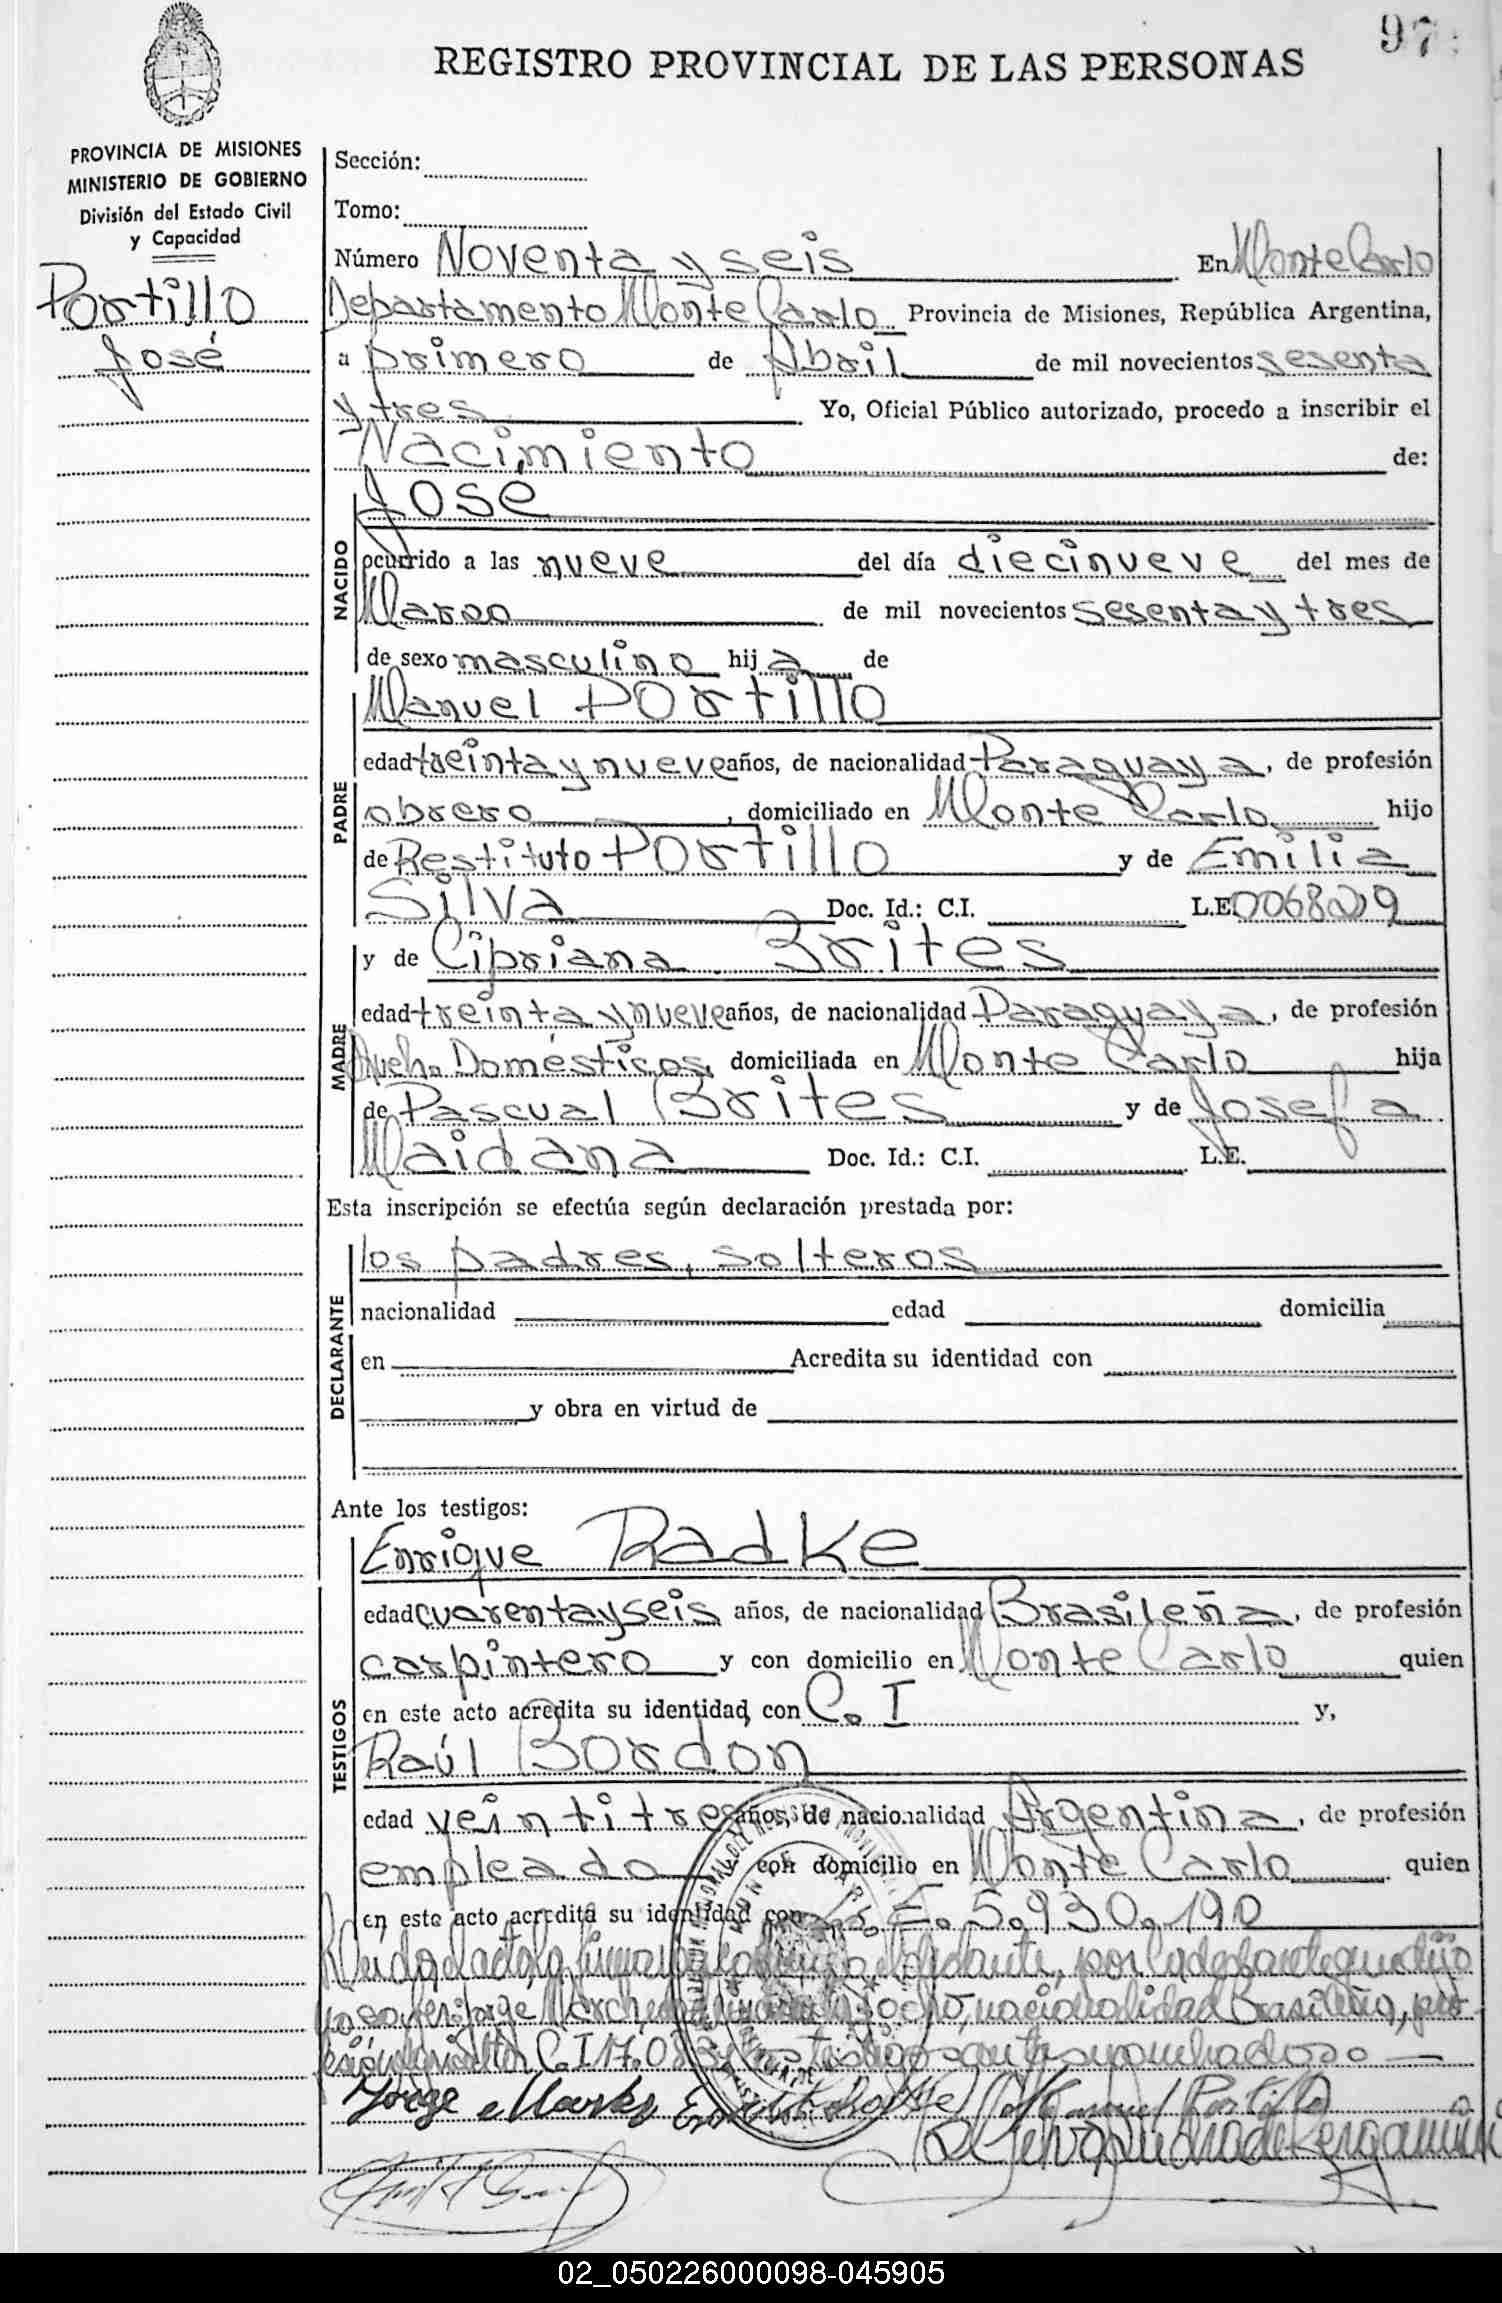 97
REGISTRO PROVINCIAL DE LAS PERSONAS
PROVINCIA DE MISIONES
MINISTERIO DE GOBIERNO
División del Estado Civil
y Capacidad
Portillo
José
Sección:
Tomo:
Número Noventa y seis En Monte Carlo
Departamento Monte Carlo Provincia de Misiones, República Argentina,
a primero de Abril de mil novecientos sesenta
y tres Yo, Oficial Público autorizado, procedo a inscribir el
Nacimiento de:
NACIDO
José
ocurrido a las nueve del día diecinueve del mes de
Marzo de mil novecientos sesenta y tres
de sexo masculino hij a de
PADRE
Manuel Portillo
edad treinta y nueve años, de nacionalidad Paraguaya, de profesión
obrero, domiciliado en Monte Carlo hijo
de Restituto Portillo y de Emilia
Silva Doc. Id.: C.I. L.E.
MADRE
y de Cipriana Brites
edad treinta y nueve años, de nacionalidad Paraguaya, de profesión
Queh. Domésticos, domiciliada en Monte Carlo hija
de Pascual Brites y de Josefa
Maidana Doc. Id.: C.I. L.E.
Esta inscripción se efectúa según declaración prestada por:
DECLARANTE
los padres, solteros
nacionalidad edad domicilia
en Acredita su identidad con
y obra en virtud de
Ante los testigos:
TESTIGOS
Enrique Radke
edad cuarenta y seis años, de nacionalidad Brasileña, de profesión
carpintero y con domicilio en Monte Carlo quien
en este acto acredita su identidad con C. I y,
Raúl Bordon
edad veintitres años, de nacionalidad Argentina, de profesión
empleado con domicilio en Monte Carlo quien
en este acto acredita su identidad con L. E. 5.930.190
Leída el acta, la firma el declarante, por la declarante que dijo
no saber: Jorge ocho, nacionalidad Brasileña, pro-
fesión C.I 17.083 testigos
Jorge Manuel Portillo
02_050226000098-045905